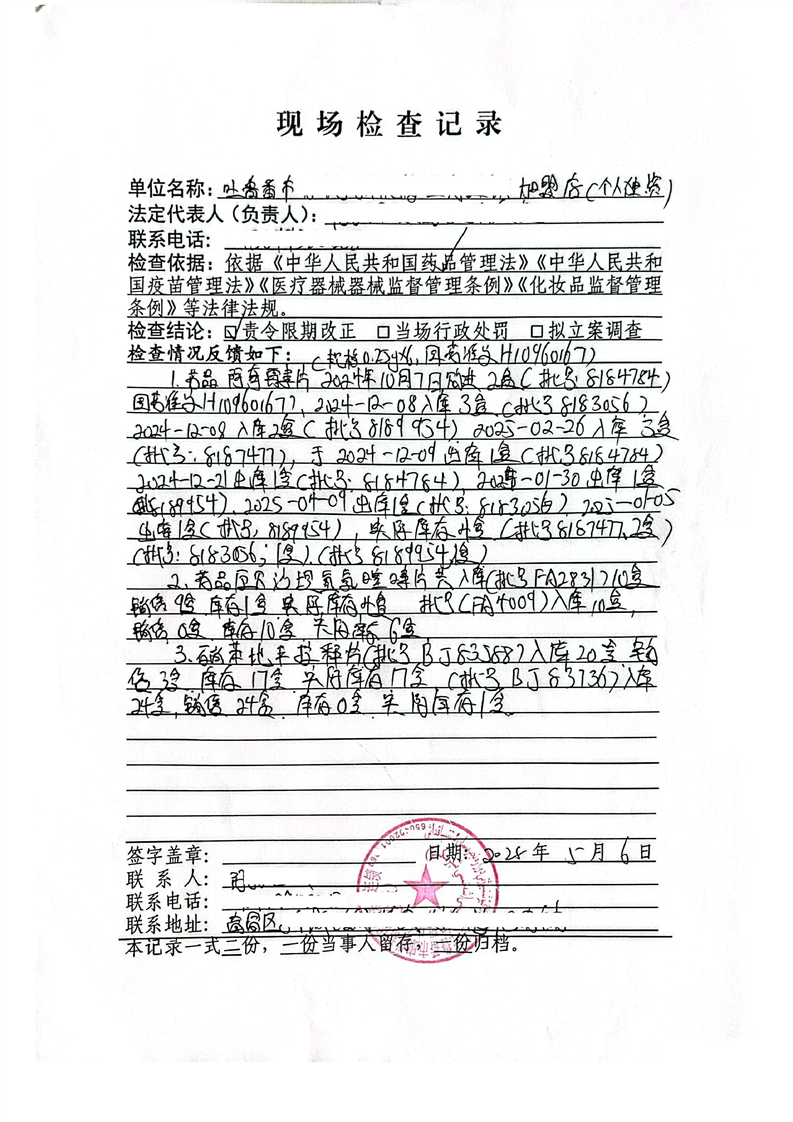 现场检查记录
单位名称：吐鲁番市 加盟店（个人独资）
法定代表人（负责人）：
联系电话：
检查依据：依据《中华人民共和国药品管理法》《中华人民共和
国疫苗管理法》《医疗器械器械监督管理条例》《化妆品监督管理
条例》等法律法规。
检查结论：☑责令限期改正 □当场行政处罚 □拟立案调查
检查情况反馈如下：（规格0.25g×6，国药准字H10960167）
1.药品 阿奇霉素片 2024年10月7日 2盒（批号：8184784）
国药准字H10960167），2024-12-08入库3盒（批号8183056）
2024-12-08入库2盒（批号8189954） 2025-02-26入库3盒
（批号：8187477），于2024-12-09出库1盒（批号8184784）
2024-12-21出库1盒（批号：8184784），2025-01-30出库1盒
8189954），2025-04-09出库1盒（批号：8183056），2025-01-05
出库1盒（批号：8189954），实际库存4盒（批号8187477，2盒）
（批号：8183056；1盒），（批号8189954，1盒）
2.药品厄贝沙坦氢氯噻嗪片共入库（批号FA2831）10盒
销售9盒 库存1盒 实际库存 批号（FA4009）入库10盒，
销售0盒 库存10盒 实际库存6盒
3.硝苯地平控释片（批号BJ83588）入库20盒 销
售3盒 库存17盒 实际库存17盒（批号BJ83736）入库
24盒，销售24盒 库存0盒 实际库存1盒
签字盖章： 日期：2025年5月6日
联系人：
联系电话：
联系地址：高昌区
本记录一式二份，一份当事人留存，一份归档。